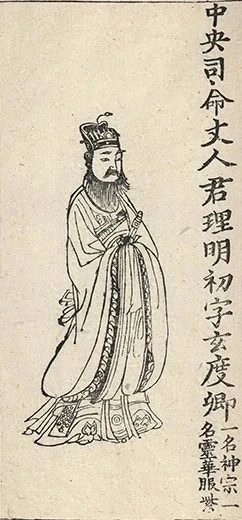 中央司命丈人君理明初字玄度卿一名神宗一
名靈華服紫